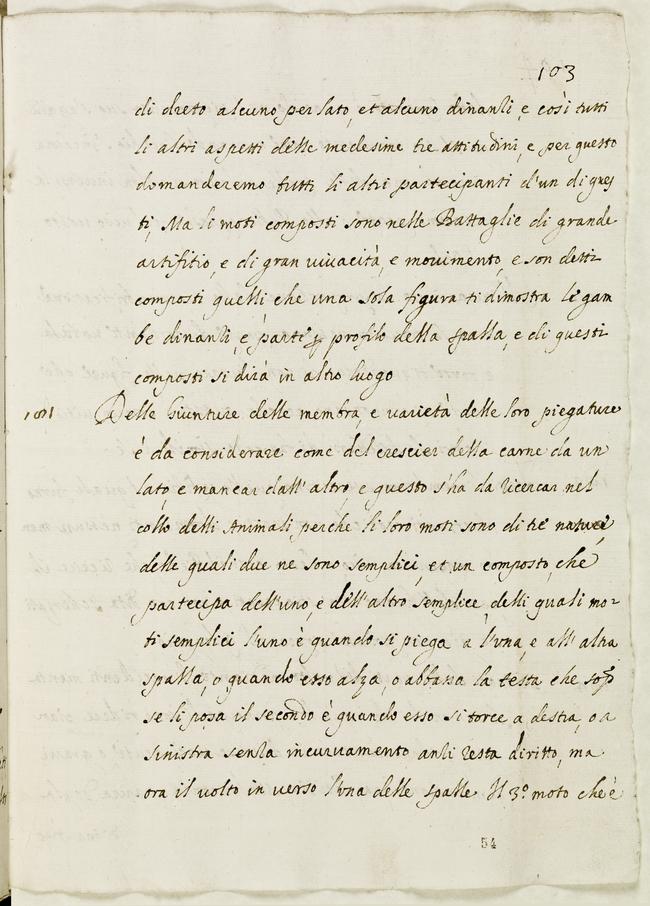 103
di dreto alcuno per lato, et alcuno dinanzi, e così tutti
li altri aspetti delle medesime tre attitudini, e per questo
domanderemo tutti li altri partecipanti d'un di ques
ti, Ma li moti composti sono nelle Battaglie di grande
artifitio, e di gran vivacità, e movimento, e son detti
composti quelli che una sola figura ti dimostra le gam
be dinanzi, e parte profilo della spalla, e di questi
composti si dirà in altro luogo
Delle Giunture delle membra, e varietà delle loro piegature
è da considerare come del crescier della carne da un
lato, e mancar dall'altro, e questo s'ha da ricercar nel
collo delli Animali perche li loro moti sono di tre nature
delle quali due ne sono semplici, et un composto, che
partecipa dell'uno, e dell'altro semplice, delli quali mo-
ti semplici l'uno è quando si piega a l'vna, e all'altra
spalla, o quando esso alza, o abbassa la testa che sop
se li posa il secondo è quando esso si torce a destra, o a
sinistra senza incurvamento anzi resta diritto, ma
ora il volto in verso l'vna delle spalle Il 3º moto che è
54